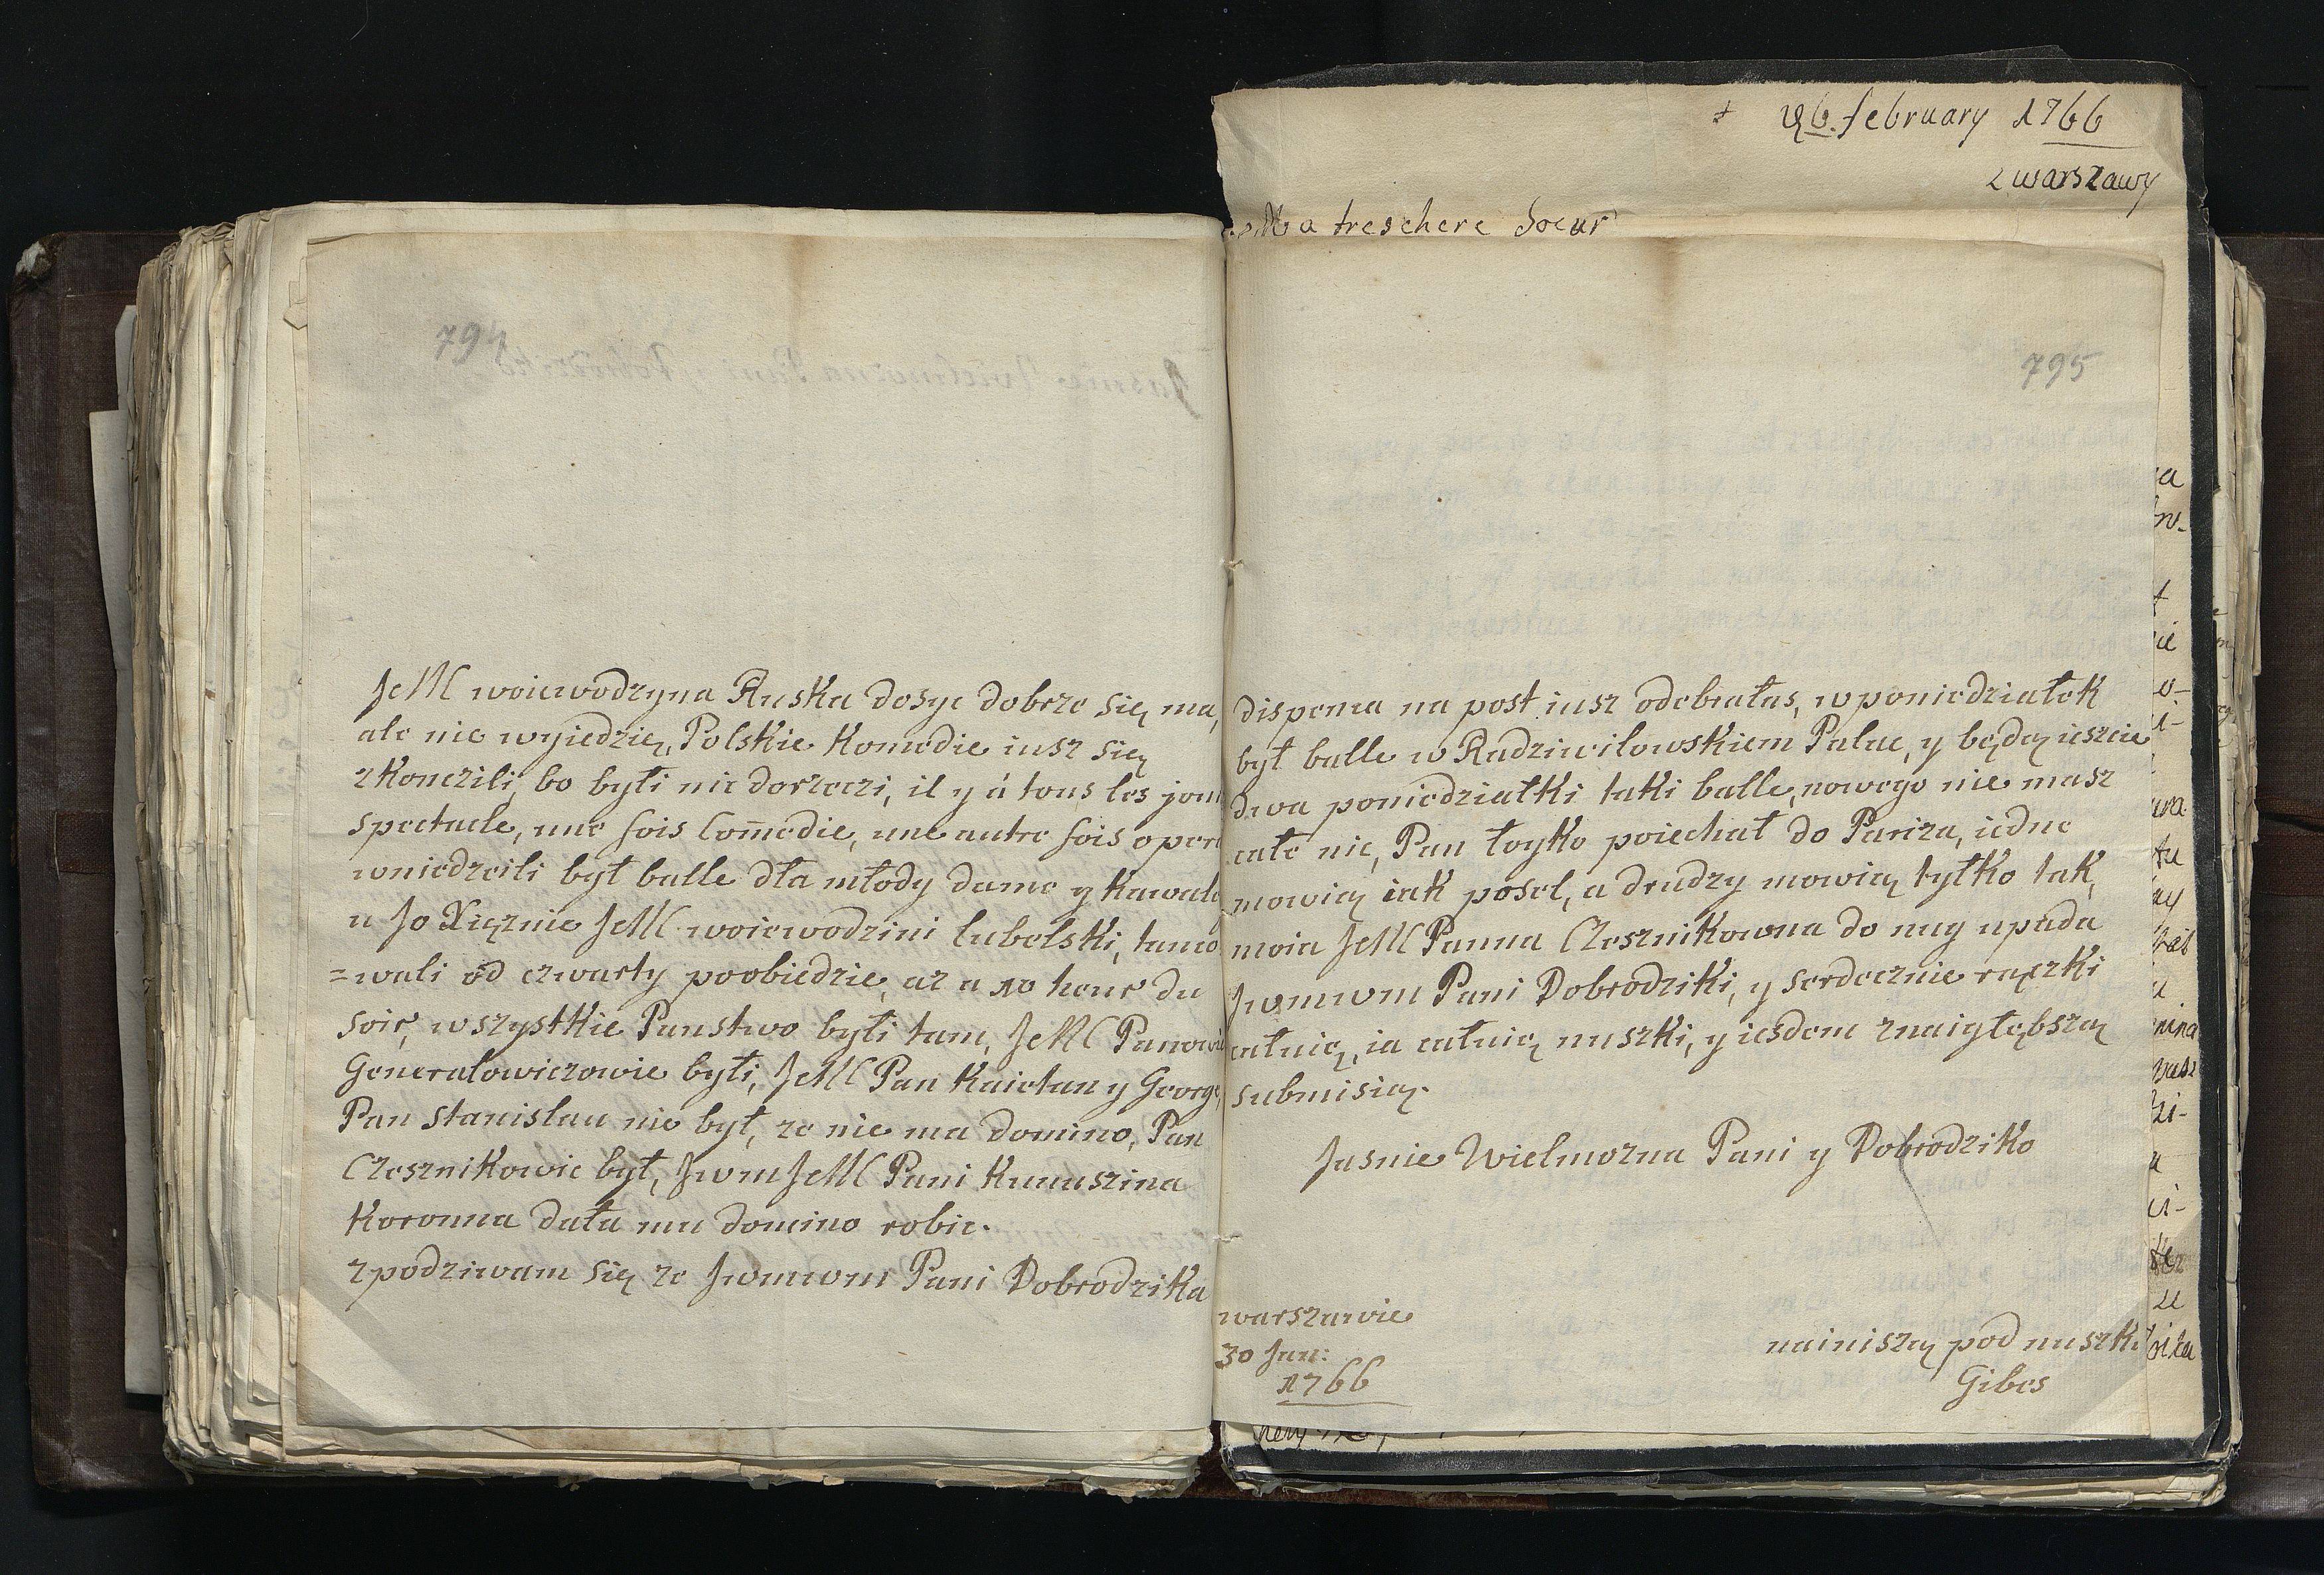 794
JeM woiewodzyna Ruska dosyc dobrze się ma,
ale nie wyiedzię, Polskie Komedie iusz się
zkonczili, bo byłi nie dorzeczi, il y á tous les jou
spectacle, une fois Com̄edie, une autre fois oper
wniedzeili był balle dła młody dame y Kawale
u Jo Xięznie JeM woiewodzini lubelski, tanco
=wali od czwarty poobiedzie, az a 10 heur du
soir, wszystkie Panstwo byłi tam, JeM Panowi
Generałowiczowie byłi, JeM Pan Kaietan y George,
Pan stanislau nie był, ze nie ma domino, Pan
Czesznikowic był, Jwm JeM Pani Kunuszina
Koronna dała mu domino robic.
zpodziwam się ze Jwmwm Pani Dobrodzika
+ 26. february 1766
z warszawy
Ma treschere Soeur
795
dispensa na post iusz odebrałas, wponiedziałek
był balle w Radziwilowskiem Palac, y będą ieszcie
dwa poniedziałki taki balle, nowego nie masz
całe nic, Pan łoyko poiechał do Pariza, iedne
mowią iak posel, a drudzy mowią tyłko tak,
moia JeM Panna Czesznikowna do nug upada
Jwmwm Pani Dobrodziki, y serdecznie rączki
całuię, ia całuię nuszki, y iesdem znaigłębszą
submisią.
Jasnie Wielmozna Pani y Dobrodziko
warszawie
30 Jan:
1766
nainiszą pod nuszki
Gibes